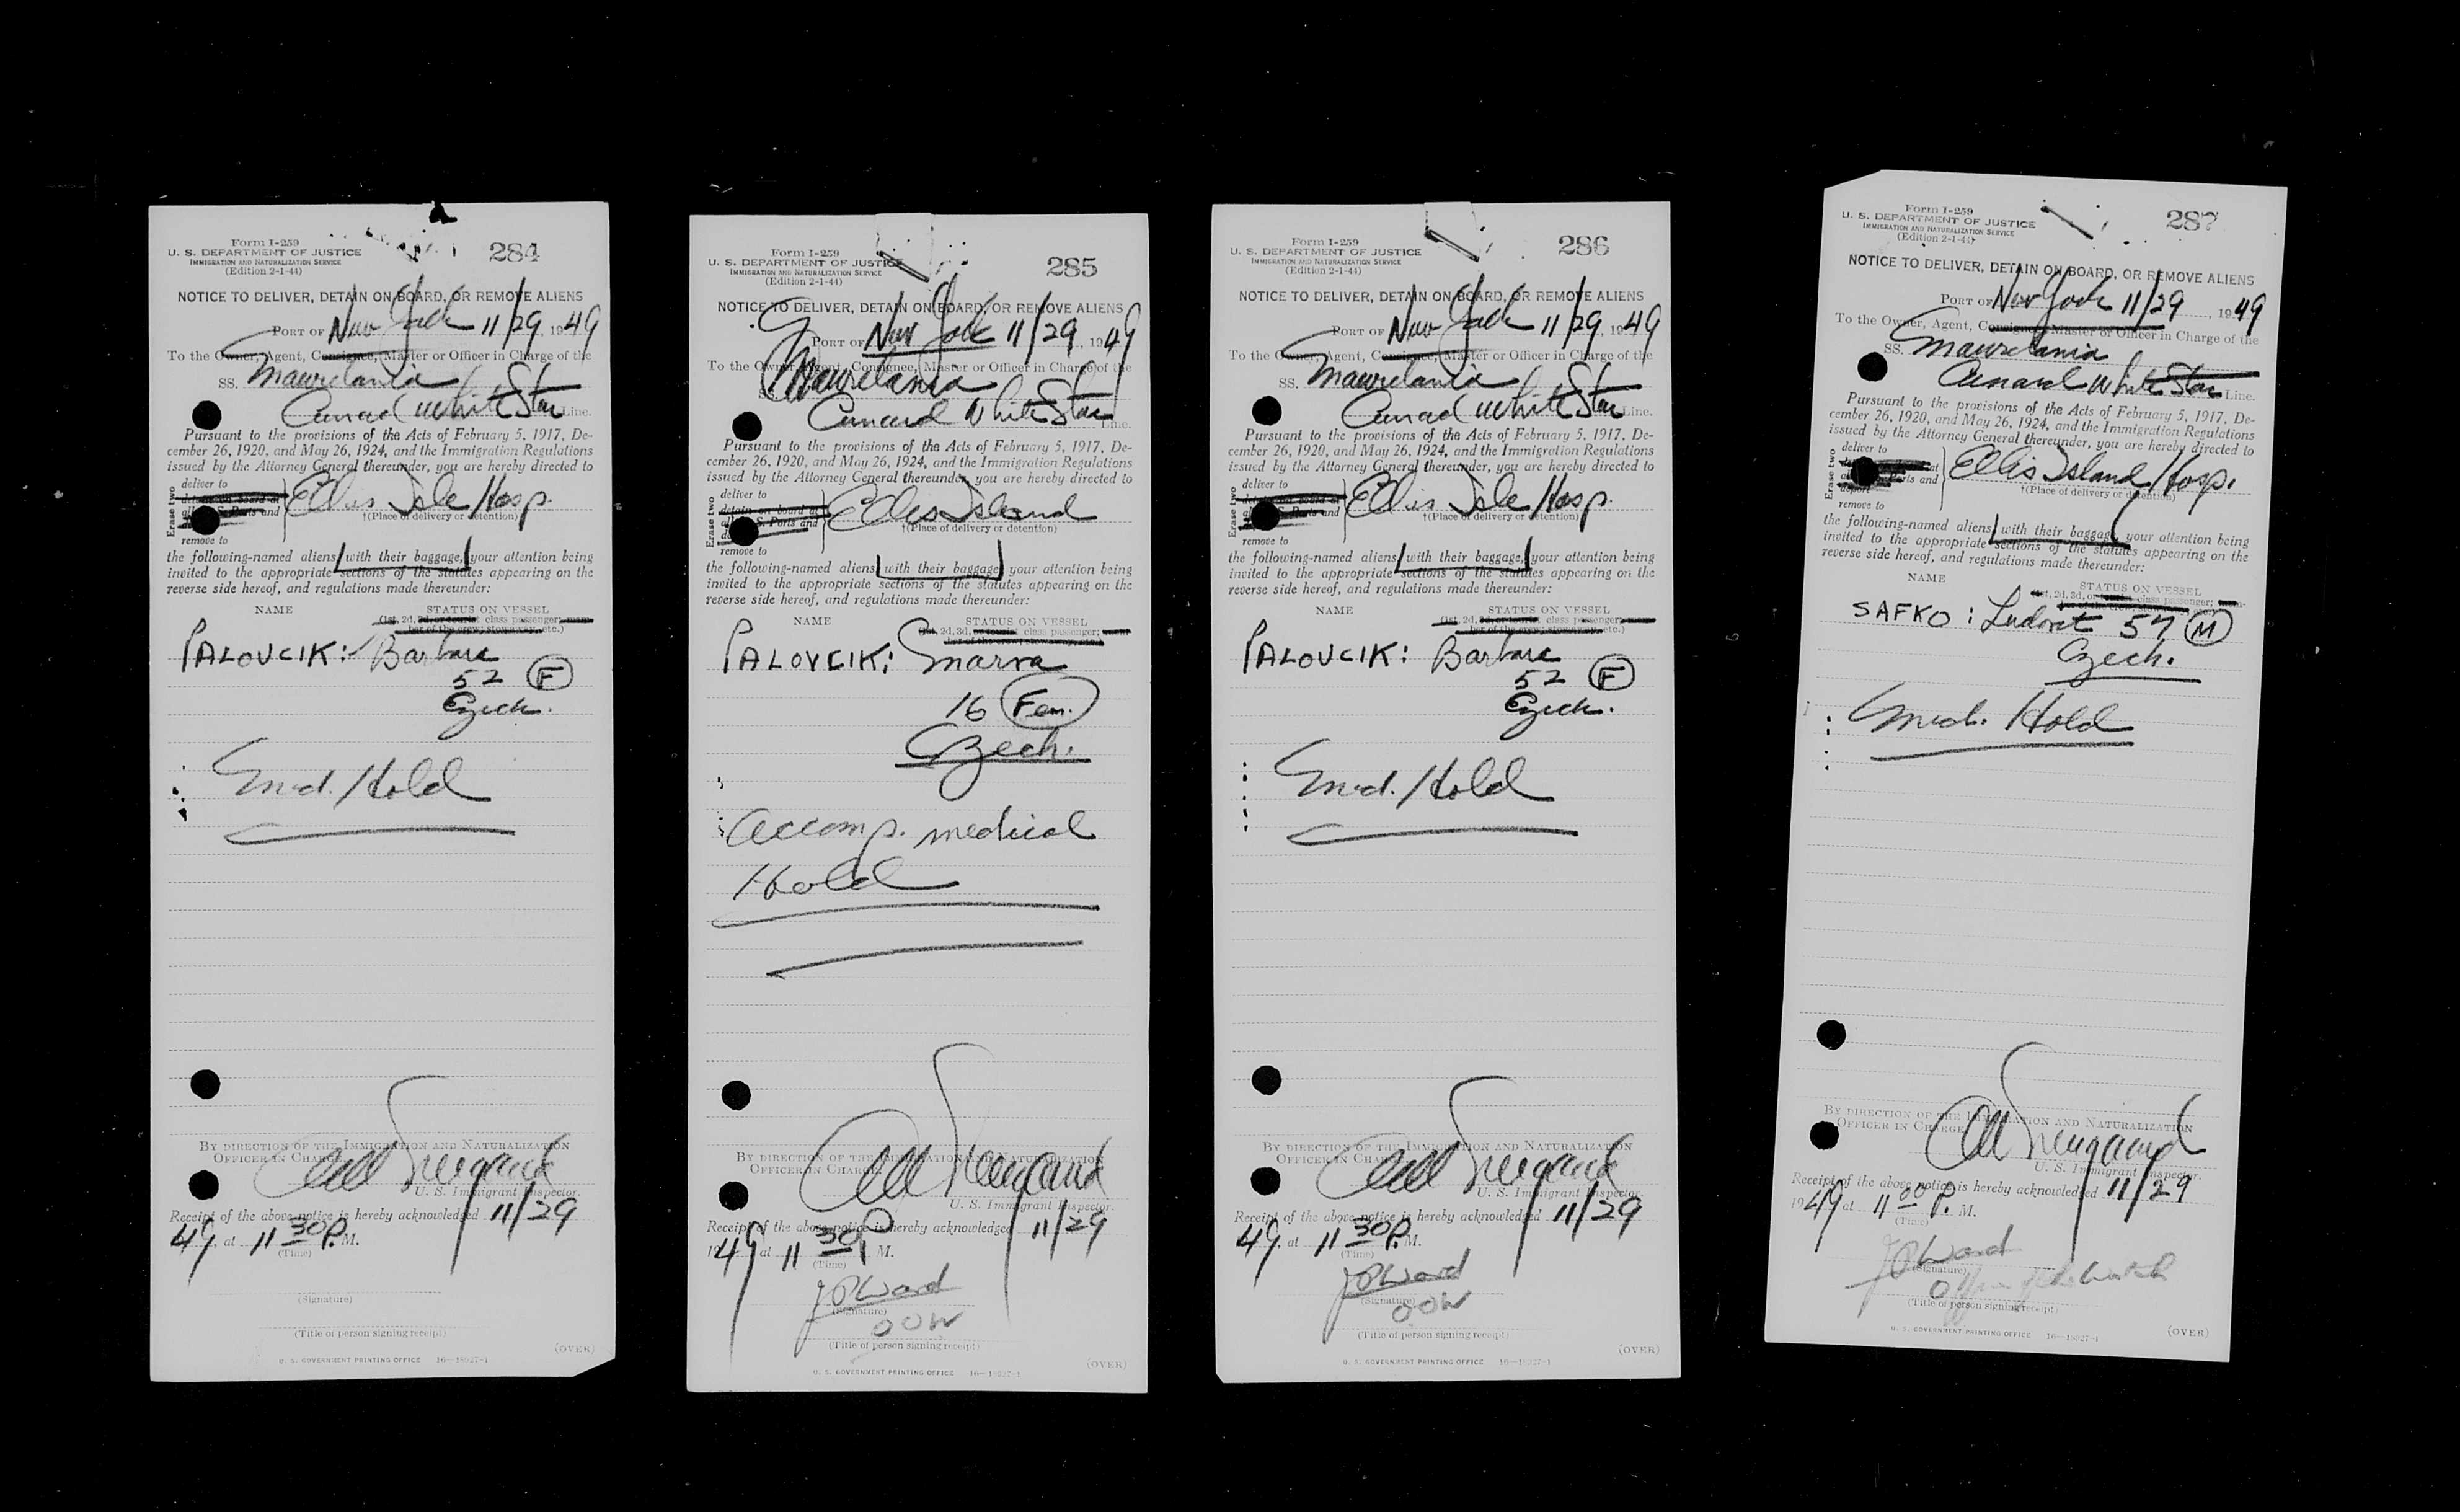 Form I-259
U. S. DEPARTMENT OF JUSTICE
IMMIGRATION AND NATURALIZATION SERVICE
(Edition 2-1-44)
284
NOTICE TO DELIVER, DETAIN ON BOARD, OR REMOVE ALIENS
PORT OF New York 11/29, 1949
To the Owner, Agent, Consignee, Master or Officer in Charge of the
SS. Mauretania
Cunard White Star Line.
Pursuant to the provisions of the Acts of February 5, 1917, De-
cember 26, 1920, and May 26, 1924, and the Immigration Regulations
issued by the Attorney General thereunder, you are hereby directed to
Erase two
deliver to
Ellis Isle Hosp.
†(Place of delivery or detention)
remove to
the following-named aliens with their baggage, your attention being
invited to the appropriate sections of the statutes appearing on the
reverse side hereof, and regulations made thereunder:
NAME STATUS ON VESSEL
(1st, 2d, 3d, or tourist class passenger;
ber of the crew; stowaway, etc.)
PALOVCIK: Barbara
52 F
Czech.
Med. Hold
BY DIRECTION OF THE IMMIGRATION AND NATURALIZATION
OFFICER IN CHARGE
U. S. Immigrant Inspector.
Receipt of the above notice is hereby acknowledged 11/29
49. at 11 30 P. M.
(Time)
(Signature)
(Title of person signing receipt)
U. S. GOVERNMENT PRINTING OFFICE 16—18927-1
(OVER)
Form I-259
U. S. DEPARTMENT OF JUSTICE
IMMIGRATION AND NATURALIZATION SERVICE
(Edition 2-1-44)
285
NOTICE TO DELIVER, DETAIN ON BOARD, OR REMOVE ALIENS
PORT OF New York 11/29, 1949
To the Owner, Agent, Consignee, Master or Officer in Charge of the
Mauretania
Cunard White Star Line.
Pursuant to the provisions of the Acts of February 5, 1917, De-
cember 26, 1920, and May 26, 1924, and the Immigration Regulations
issued by the Attorney General thereunder, you are hereby directed to
Erase two
deliver to
detain on board at
Ellis Island
all U. S. Ports and
†(Place of delivery or detention)
remove to
the following-named aliens with their baggage, your attention being
invited to the appropriate sections of the statutes appearing on the
reverse side hereof, and regulations made thereunder:
NAME STATUS ON VESSEL
(1st, 2d, 3d, or tourist class passenger;
ber of the crew; stowaway, etc.)
PALOVCIK: Maria
16 Fem.
Czech.
accomp. medical
Hold
BY DIRECTION OF THE IMMIGRATION AND NATURALIZATION
OFFICER IN CHARGE
U. S. Immigrant Inspector.
Receipt of the above notice is hereby acknowledged 11/29
1949 at 11 30 P M.
(Time)
JP Ward
(Signature)
OOW
(Title of person signing receipt)
U. S. GOVERNMENT PRINTING OFFICE 16—18927-1
(OVER)
Form I-259
U. S. DEPARTMENT OF JUSTICE
IMMIGRATION AND NATURALIZATION SERVICE
(Edition 2-1-44)
286
NOTICE TO DELIVER, DETAIN ON BOARD, OR REMOVE ALIENS
PORT OF New York 11/29, 1949
To the Owner, Agent, Consignee, Master or Officer in Charge of the
SS. Mauretania
Cunard White Star Line.
Pursuant to the provisions of the Acts of February 5, 1917, De-
cember 26, 1920, and May 26, 1924, and the Immigration Regulations
issued by the Attorney General thereunder, you are hereby directed to
Erase two
deliver to
Ellis Isle Hosp.
†(Place of delivery or detention)
remove to
the following-named aliens with their baggage, your attention being
invited to the appropriate sections of the statutes appearing on the
reverse side hereof, and regulations made thereunder:
NAME STATUS ON VESSEL
(1st, 2d, 3d, or tourist class passenger;
ber of the crew; stowaway, etc.)
PALOVCIK: Barbara
52 F
Czech.
Med. Hold
BY DIRECTION OF THE IMMIGRATION AND NATURALIZATION
OFFICER IN CHARGE
U. S. Immigrant Inspector.
Receipt of the above notice is hereby acknowledged 11/29
49. at 11 30 P. M.
(Time)
JP Ward
(Signature)
OOW
(Title of person signing receipt)
U. S. GOVERNMENT PRINTING OFFICE 16—18927-1
(OVER)
Form I-259
U. S. DEPARTMENT OF JUSTICE
IMMIGRATION AND NATURALIZATION SERVICE
(Edition 2-1-44)
287
NOTICE TO DELIVER, DETAIN ON BOARD, OR REMOVE ALIENS
PORT OF New York 11/29, 1949
To the Owner, Agent, Consignee, Master or Officer in Charge of the
SS. Mauretania
Cunard White Star Line.
Pursuant to the provisions of the Acts of February 5, 1917, De-
cember 26, 1920, and May 26, 1924, and the Immigration Regulations
issued by the Attorney General thereunder, you are hereby directed to
Erase two
deliver to
Ellis Island Hosp.
†(Place of delivery or detention)
remove to
the following-named aliens with their baggage, your attention being
invited to the appropriate sections of the statutes appearing on the
reverse side hereof, and regulations made thereunder:
NAME STATUS ON VESSEL
class passenger;
SAFKO: Ludovit 57 M
Czech.
Med. Hold
BY DIRECTION OF THE IMMIGRATION AND NATURALIZATION
OFFICER IN CHARGE
U. S. Immigrant Inspector.
Receipt of the above notice is hereby acknowledged 11/29
1949 at 11 00 P. M.
(Time)
JP Ward
(Signature)
Officer of the Watch
(Title of person signing receipt)
U. S. GOVERNMENT PRINTING OFFICE 16—18927-1
(OVER)